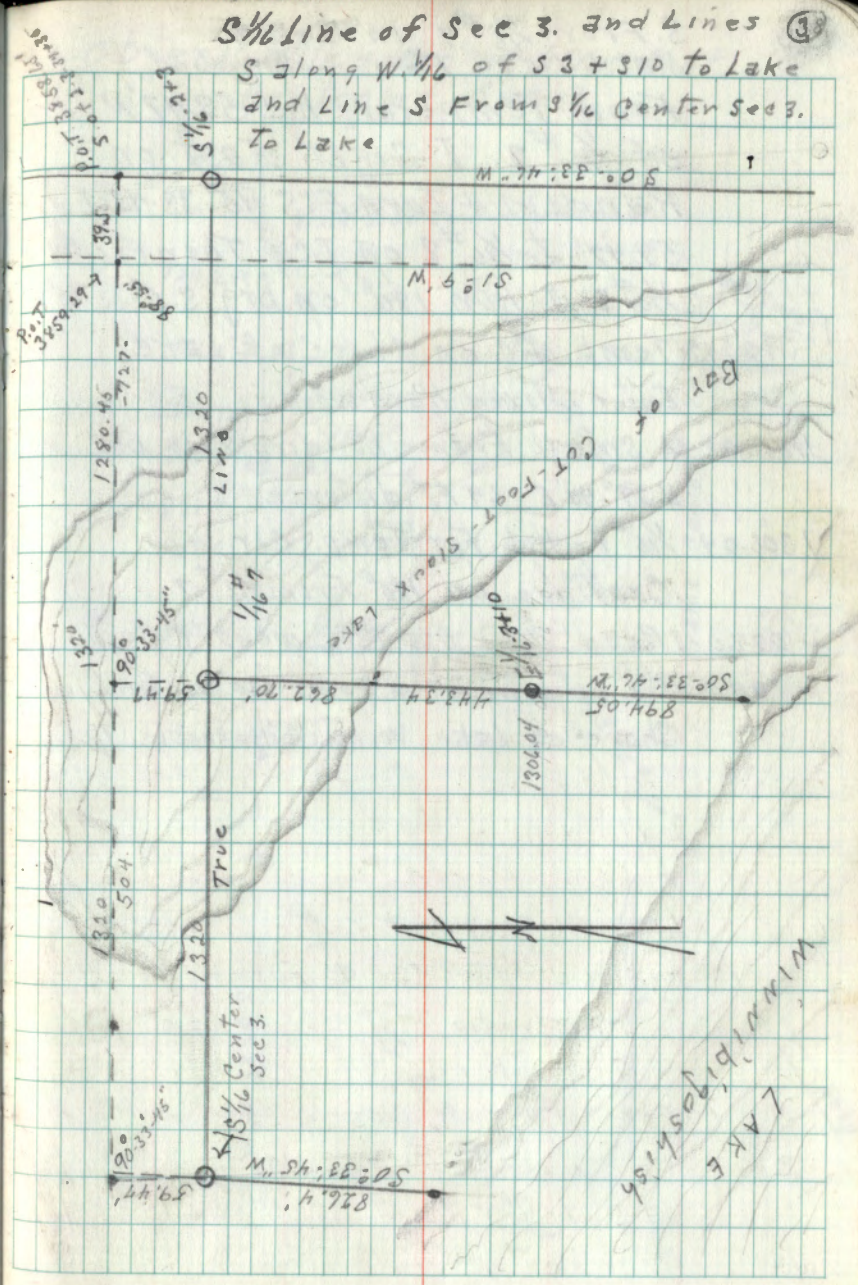 S 1/16 Line of Sec 3. and Lines
38
S along W. 1/16 of S3 + S10 to Lake
and Line S From S 1/16 Center Sec 3.
To Lake
P.O.T. 3858.65'
S 1/16 - 2+3
S 0°-33'-46" W
39.5
S 1° 9' W
P.O.T.
3859.29 →
88°-55'
1280.45
-727-
1320
LINE
Bay
of
Cut-Foot-Sioux
Lake
1/16 # 7
1320
90°-33'-45"
59.47
862.70'
443.34
E 1/16-3+10
1306.04
S 0°-33'-46" W
894.05
True
504.
1320
1320
N
S 1/16 Center
Sec 3.
90°-33'-45"
59.47'
S 0°-33'-45" W
826.4'
Winnibigoshish
LAKE